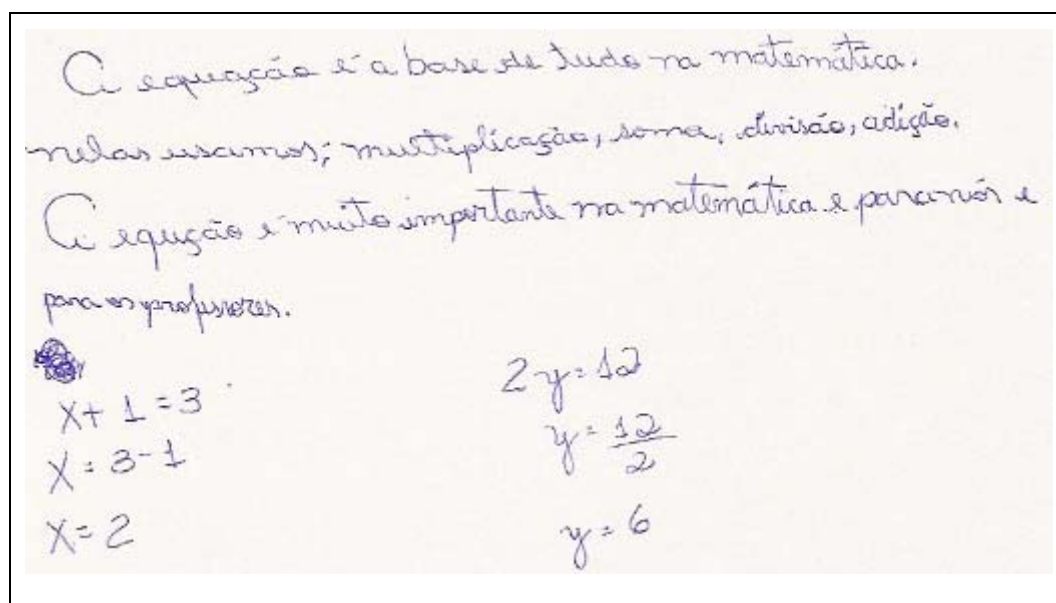 A equação é a base de tudo na matemática.
nelas usamos; multiplicação, soma, divisão, adição.
A equção é muito importante na matemática e para nós e
para os professores.
x + 1 = 3
x = 3 - 1
x = 2
2y = 12
y = 12/2
y = 6